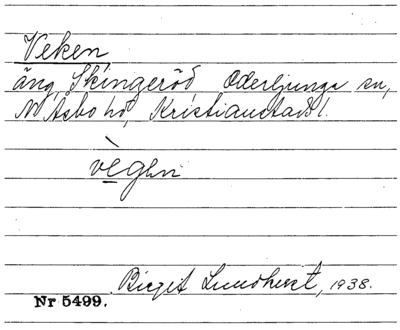 Veken
äng, Skingeröd, Oderljunga sn,
N Åsbo hd, Kristianstads l.
vègen
Birgit Lundkvist, 1938.
Nr 5499.